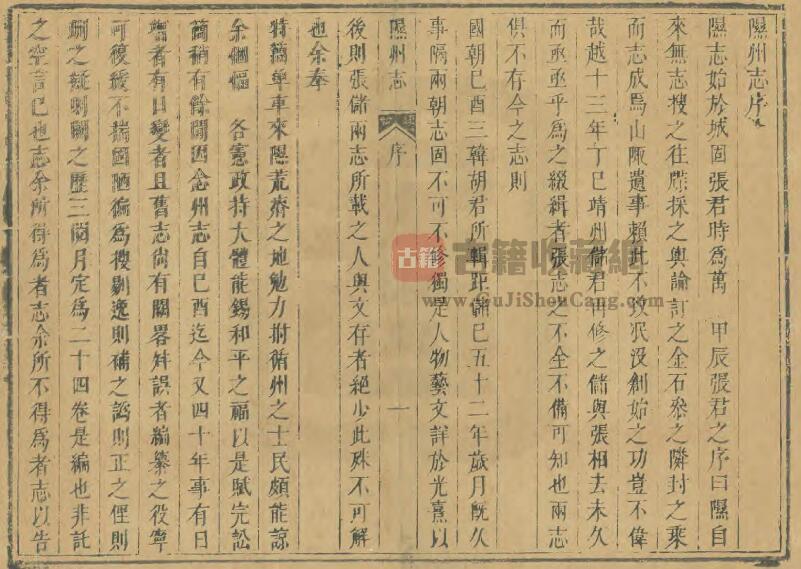 隰州志序
隰志始於城固張君時為萬 甲辰張君之序曰隰自
來無志搜之往牒採之輿論訂之金石叅之隣封之乗
而志成焉山陬遺事賴此不致泯没創始之功豈不偉
哉越十三年丁巳靖州儲君再修之儲與張相去未久
而亟亟乎為之綴緝者張志之不全不備可知也兩志
俱不存今之志則
國朝己酉三韓胡君所輯距儲已五十二年歲月既久
事隔兩朝志固不可不修獨是人物藝文詳於光熹以
隰州志
序
一
後則張儲兩志所載之人與文存者絶少此殊不可解
也余奉
特簡單車來隰荒瘠之地勉力拊循州之士民頗能諒
余悃愊 各憲政持大體能錫和平之福以是賦完訟
簡稍有餘閒因念州志自己酉迄今又四十年事有日
增者有日變者且舊志尚有闕畧舛誤者編纂之役寧
可復緩不揣固陋徧為搜剔逸則補之譌則正之俚則
刪之疑則闕之歷三閲月定為二十四卷是編也非託
之空言已也志余所得為者志余所不得為者志以告
古籍
古籍收藏網
www.GuJiShouCang.com